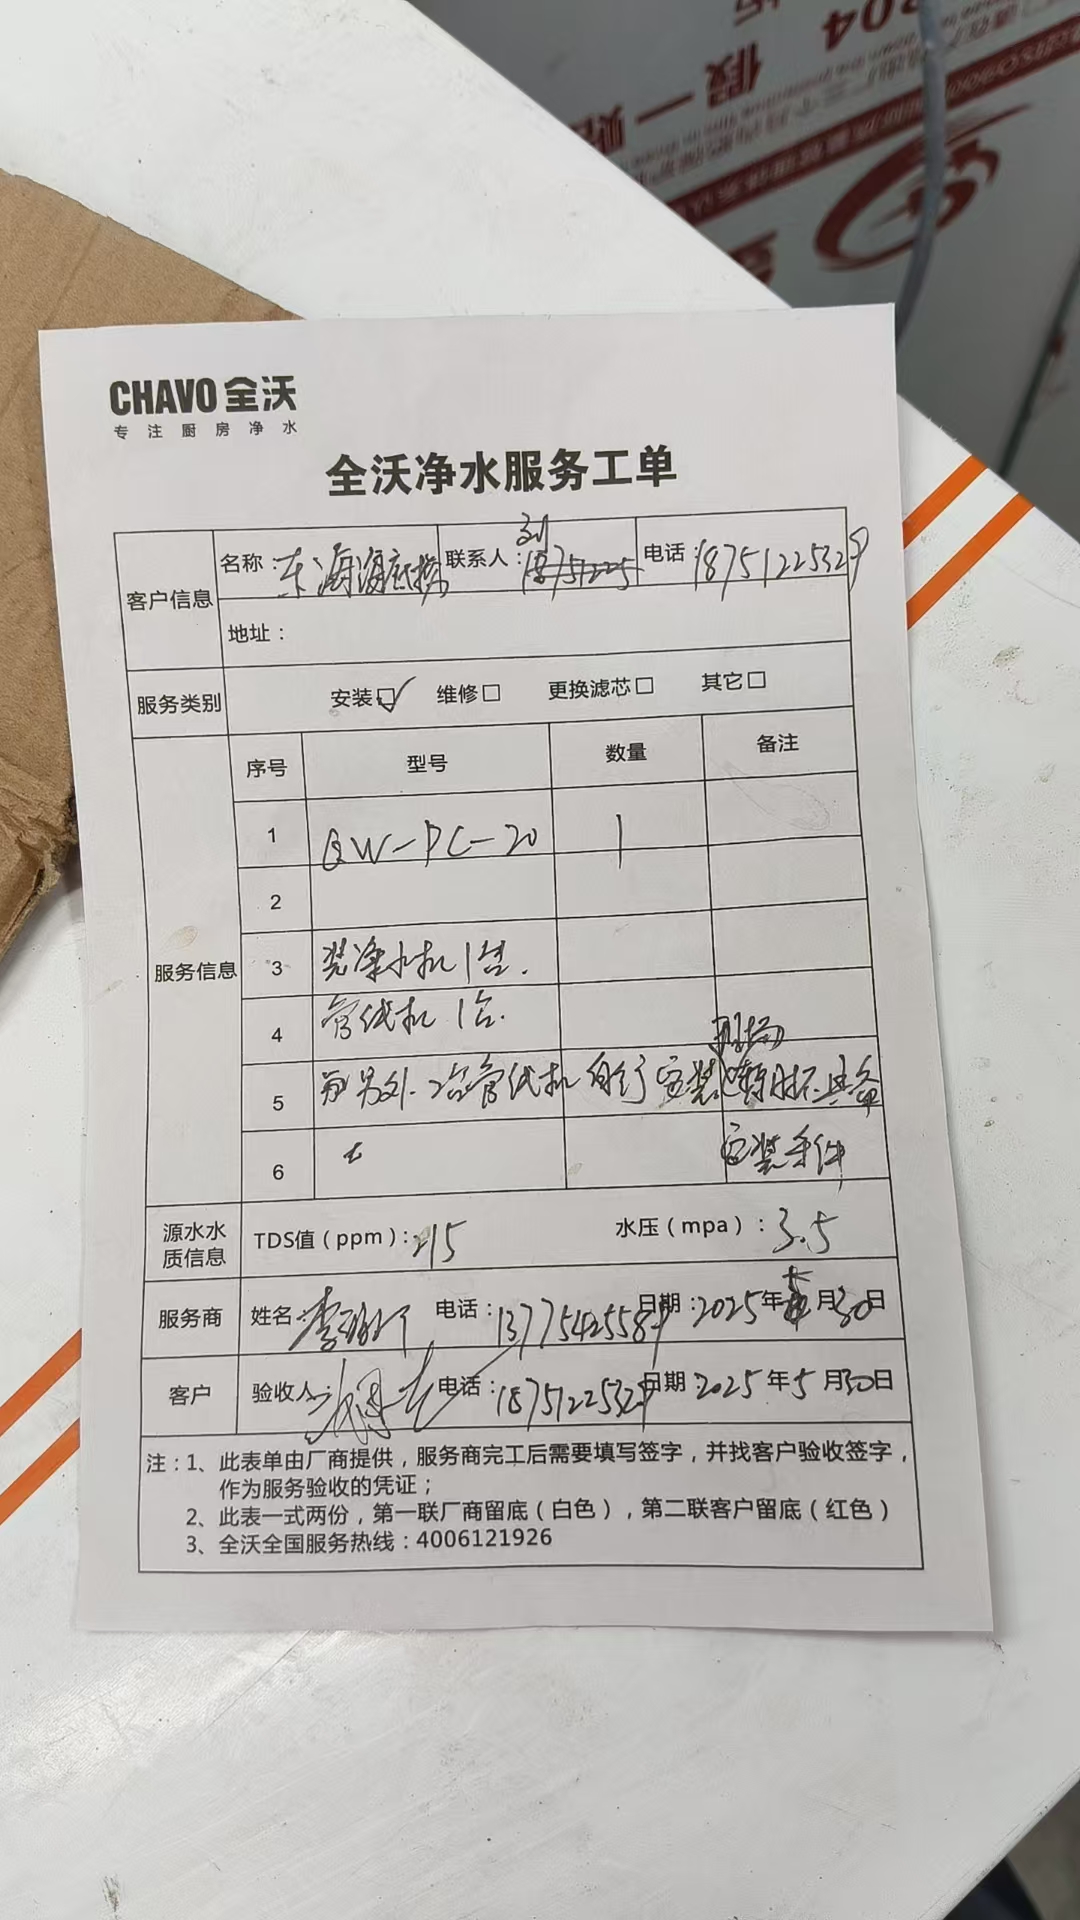 204
假一赔
CHAVO 全沃
专注厨房净水
全沃净水服务工单
客户信息
名称：东海海底捞 联系人：刘 电话：18751225329
地址：
服务类别 安装☑ 维修□ 更换滤芯□ 其它□
服务信息
序号 型号 数量 备注
1 QW-PC-20 1
2
3 装净水机1台.
4 管线机1台.
5 另外2台管线机自行安装 现场暂时不具备
6 安装条件
源水水质信息 TDS值（ppm）：215 水压（mpa）：3.5
服务商 姓名： 电话：13775425589 日期：2025年5月30日
客户 验收人： 电话：18751225329 日期 2025年5月30日
注：1、此表单由厂商提供，服务商完工后需要填写签字，并找客户验收签字，
作为服务验收的凭证；
2、此表一式两份，第一联厂商留底（白色），第二联客户留底（红色）
3、全沃全国服务热线：4006121926